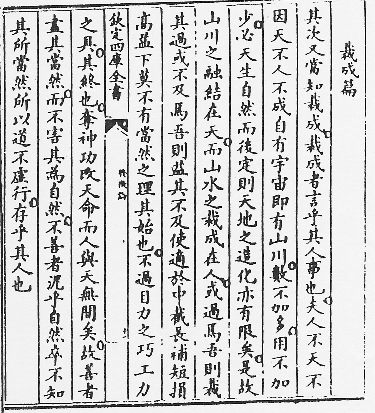 裁成篇
其次又當知裁成裁成者言乎其人事也夫人不天不
因天不人不成自有宇宙即有山川數不加多用不加
少必天生自然而後定則天地之造化亦有限矣是故
山川之融結在天而山水之裁成在人或過焉吾則裁
其過或不及焉吾則益其不及使適於中裁長補短損
高益下莫不有當然之理其始也不過目力之巧工力
欽定四庫全書
發微論
之具其終也奪神功改天命而人與天無間矣故善者
盡其當然而不害其為自然不善者泥乎自然卒不知
其所當然所以道不虛行存乎其人也